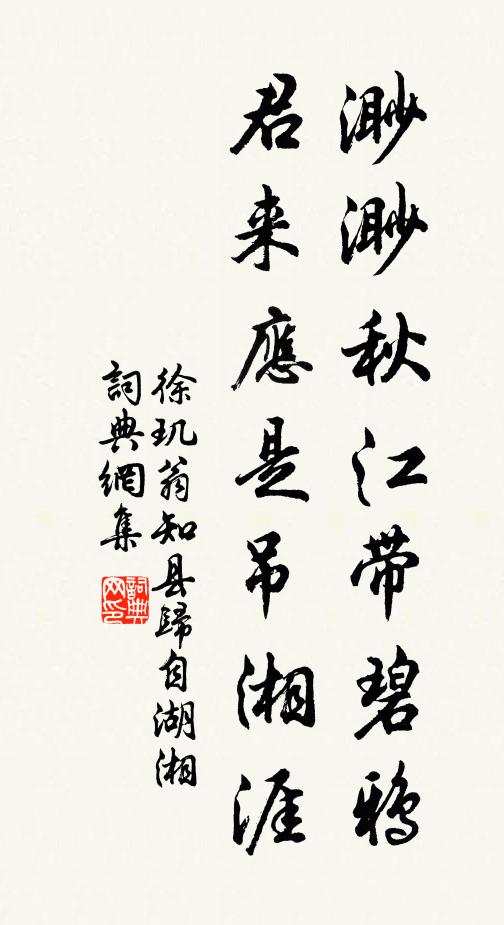 渺渺秋江带碧鴉
君来應是吊湘涯
徐玑翁知县歸自湖湘
詞典網集
詞典網印